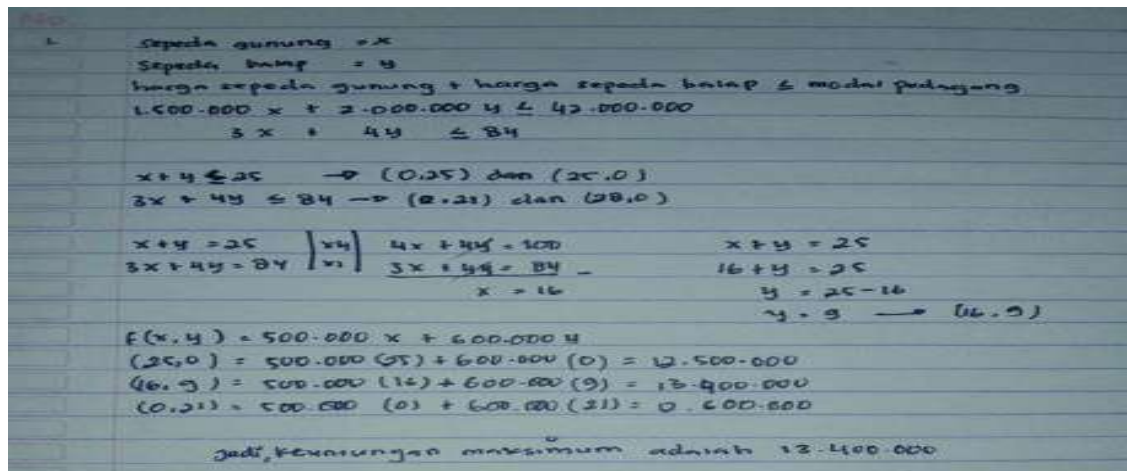 No.
1. sepeda gunung = x
Sepeda balap = y
harga sepeda gunung + harga sepeda balap ≤ modal pedagang
1.500.000 x + 2.000.000 y ≤ 42.000.000
3x + 4y ≤ 84
x + y ≤ 25 → (0,25) dan (25,0)
3x + 4y ≤ 84 → (0,21) dan (28,0)
x + y = 25 |x4| 4x + 4y = 100 x + y = 25
3x + 4y = 84 |x1| 3x + 4y = 84 - 16 + y = 25
x = 16 y = 25 - 16
y = 9 → (16,9)
F(x,y) = 500.000 x + 600.000 y
(25,0) = 500.000 (25) + 600.000 (0) = 12.500.000
(16,9) = 500.000 (16) + 600.000 (9) = 13.400.000
(0,21) = 500.000 (0) + 600.000 (21) = 0.600.000
Jadi, keuntungan maksimum adalah 13.400.000